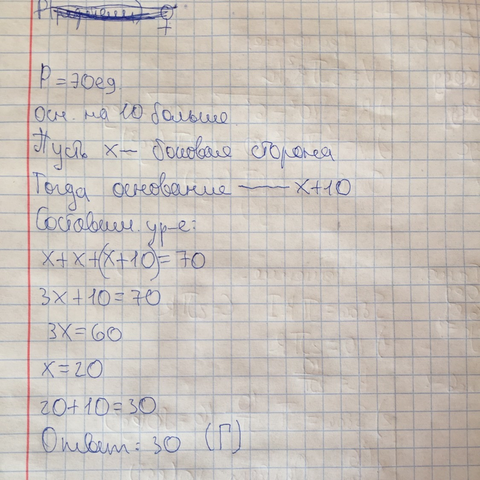 P = 70 ед.
осн. на 10 больше.
Пусть x — боковая сторона
Тогда основание — x+10
Составим ур-е:
x+x+(x+10)=70
3x+10=70
3x=60
x=20
20+10=30
Ответ: 30 (П)